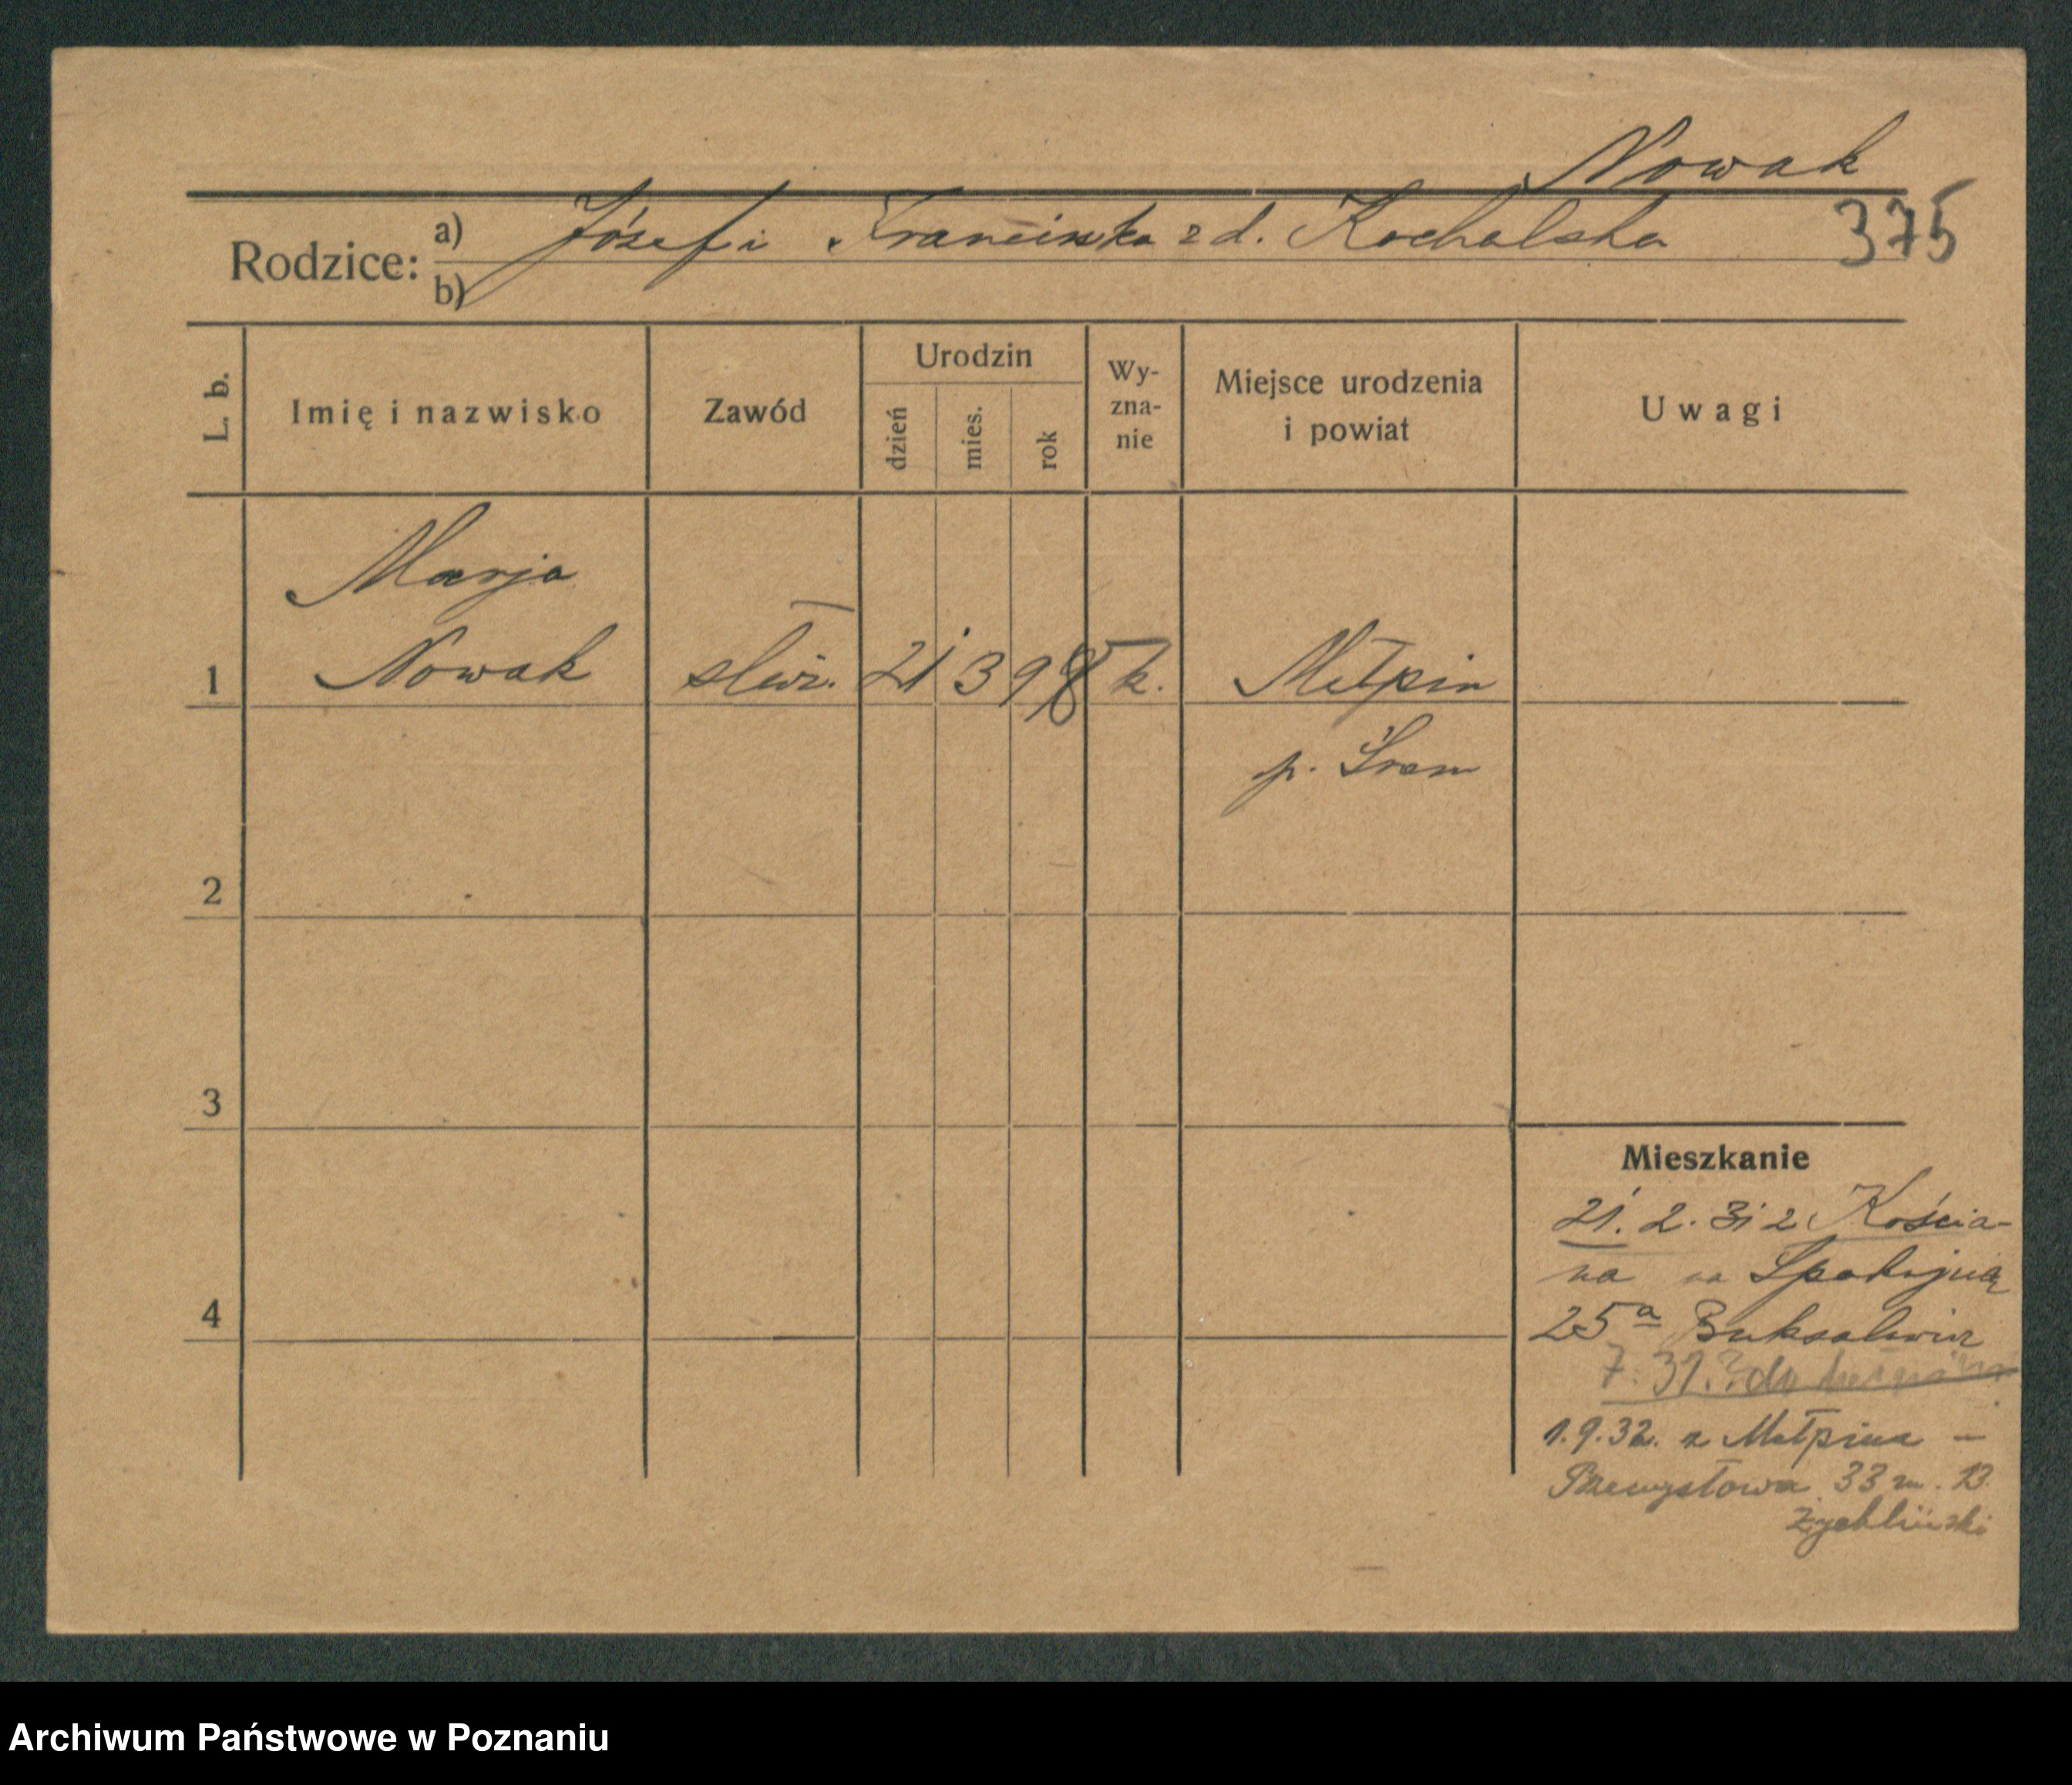 Nowak
375
Rodzice: a) Józef i Franciszka z d. Kochalska
b)
L. b.
Imię i nazwisko
Zawód
Urodzin
dzień
mies.
rok
Wy-
zna-
nie
Miejsce urodzenia
i powiat
Uwagi
Marja
1 Nowak służ. 21 3 98 k. Mełpin
p. Śrem
2
3
4
Mieszkanie
21. 2. 31 z Kościa-
na na Spokojną
25a
7. 31. do
1.9.32. z Mełpina –
Przemysłowa 33 m. 13
Żychliński
Archiwum Państwowe w Poznaniu